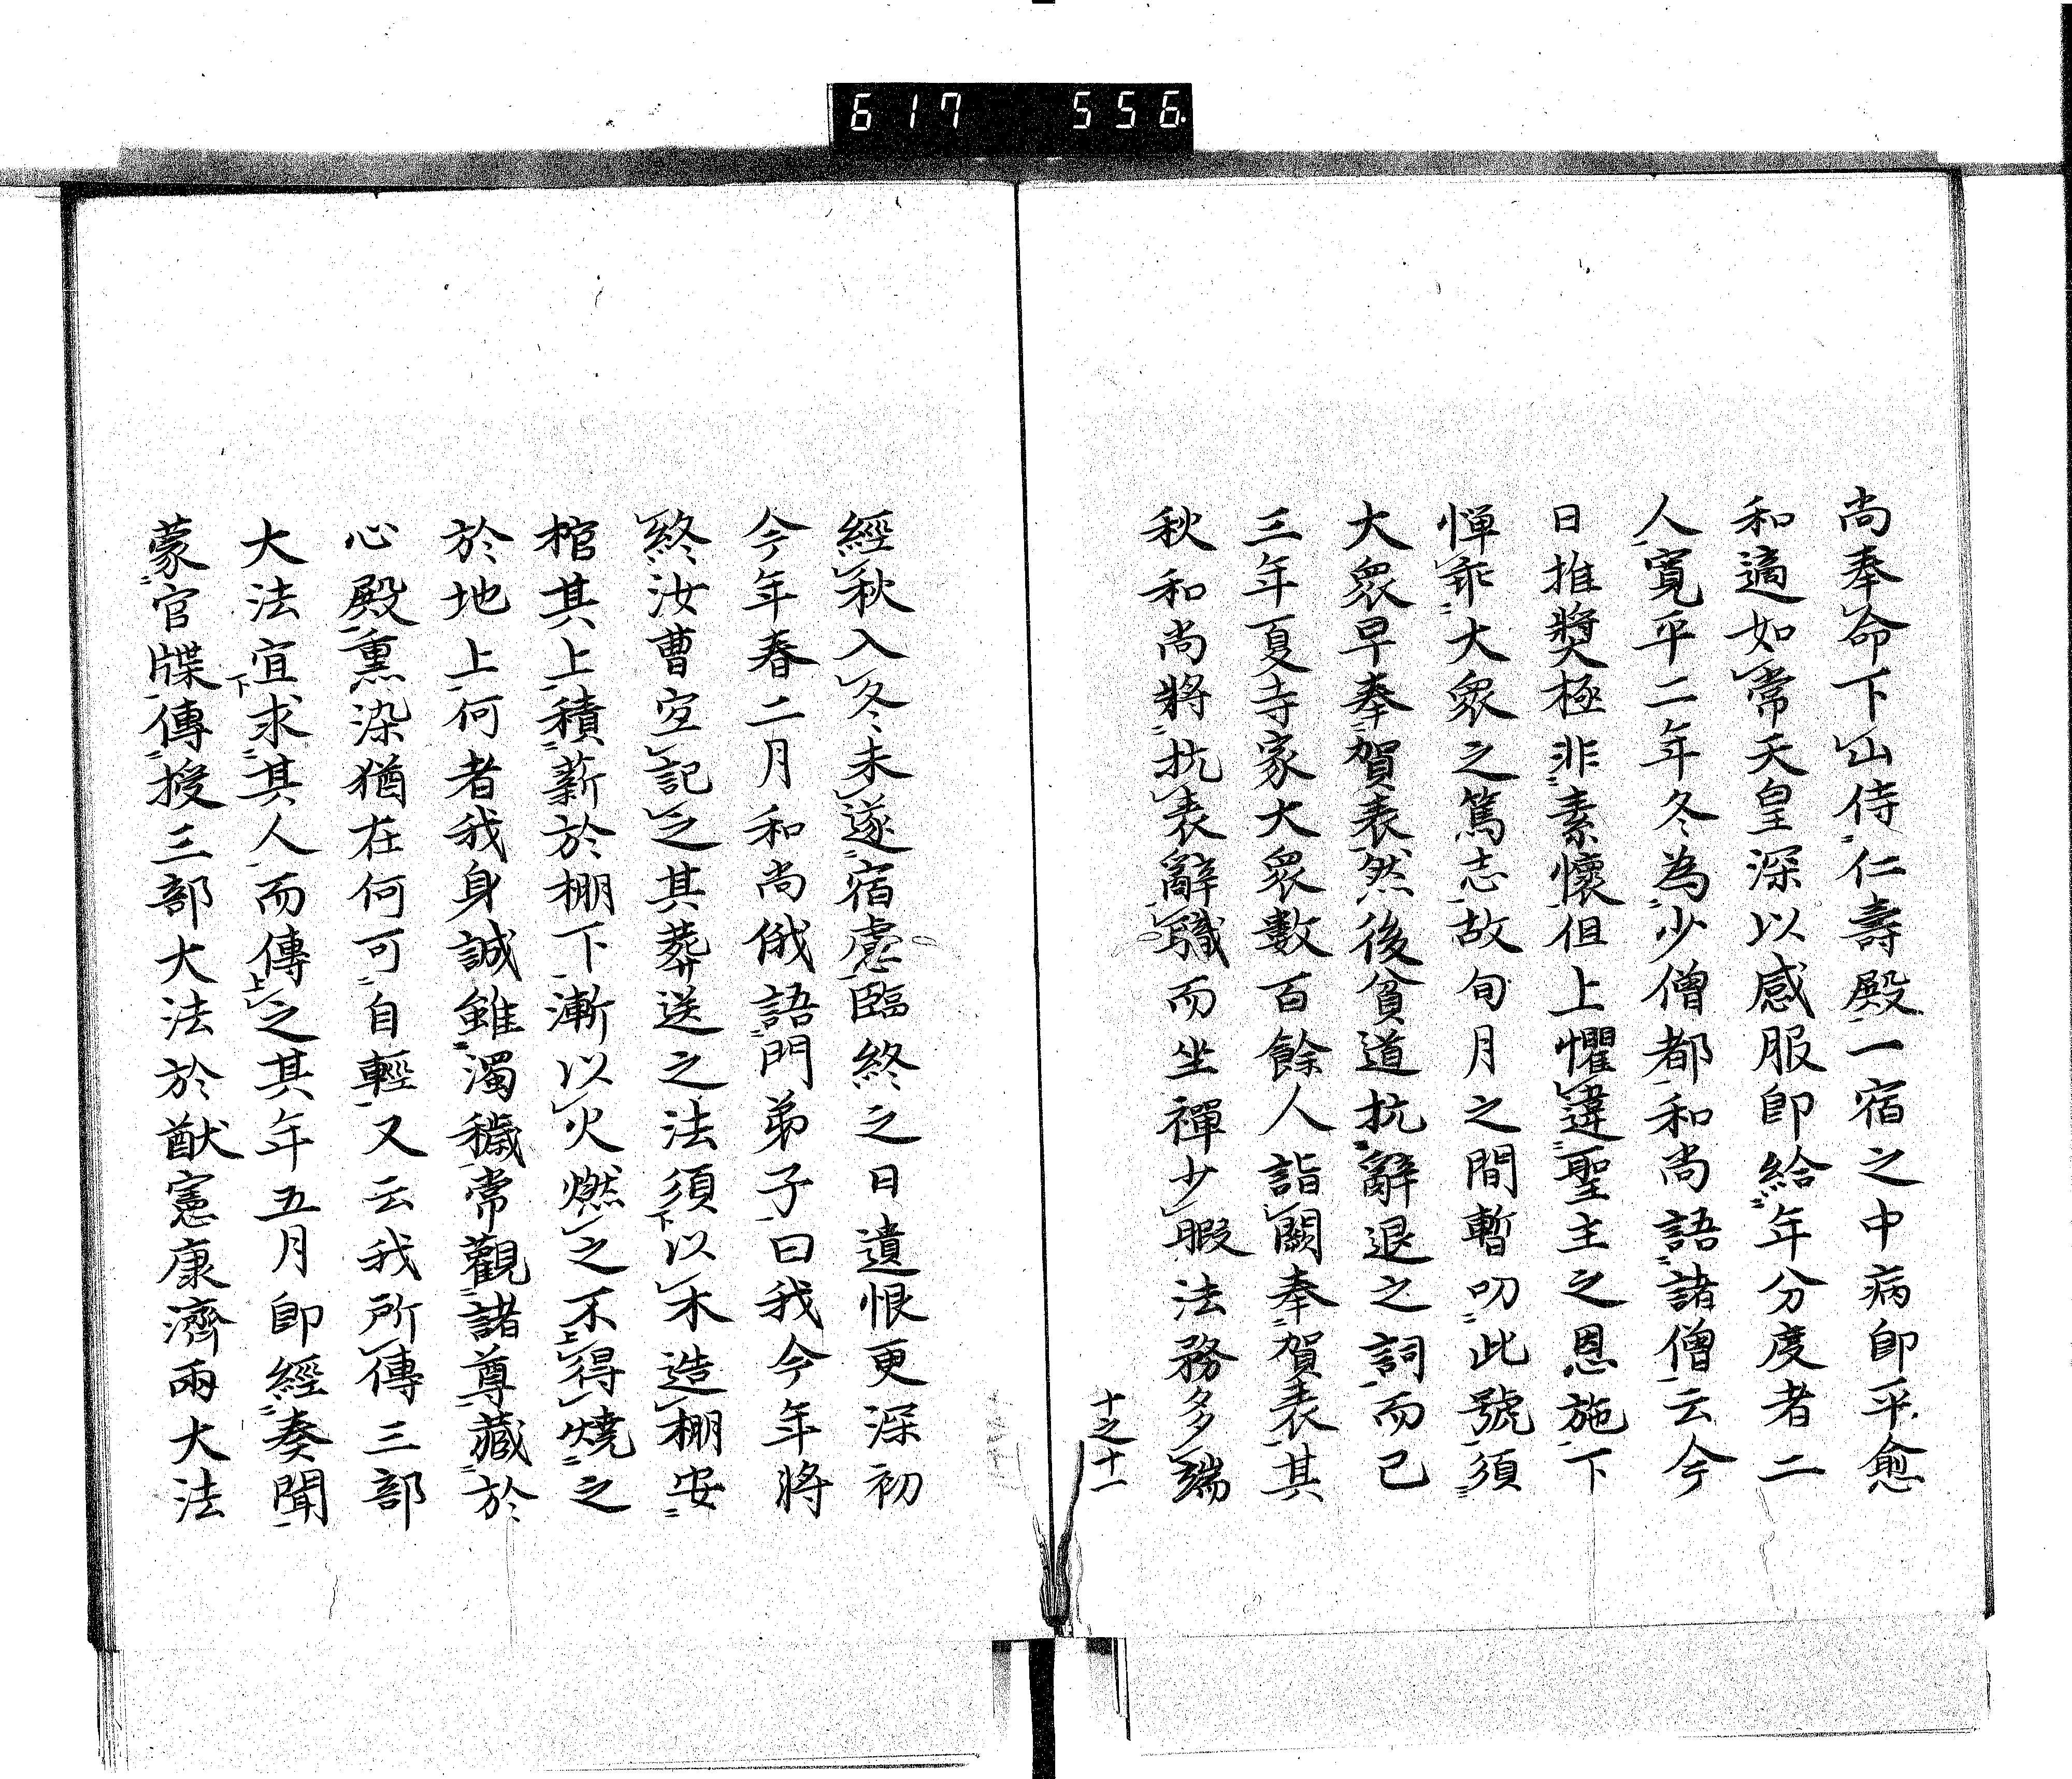 617 556
尚奉命下山侍仁壽殿一宿之中病即平愈
和適如常天皇深以感服即給年分度者二
人寬平二年冬為少僧都和尚語諸僧云今
日推奬極非素懷但上懼違聖主之恩施下
憚乖大衆之篤志故旬月之間暫叨此號須
大衆早奉賀表然後貧道抗辭退之詞而已
三年夏寺家大衆數百餘人詣闕奉賀表其
秋和尚將抗表辭職而坐禪少暇法務多端
十之十一
經秋入冬未遂宿慮臨終之日遺恨更深初
今年春二月和尚俄語門弟子曰我今年將
終汝曹宜記之其葬送之法須下以木造棚安
棺其上積薪於棚下漸以火燃之不上得燒之
於地上何者我身誠雖濁穢常觀諸尊藏於
心殿熏染猶在何可自輕又云我所傳三部
大法宜下求其人而傳上之其年五月即經奏聞
蒙官牒傳授三部大法於猷憲康濟兩大法